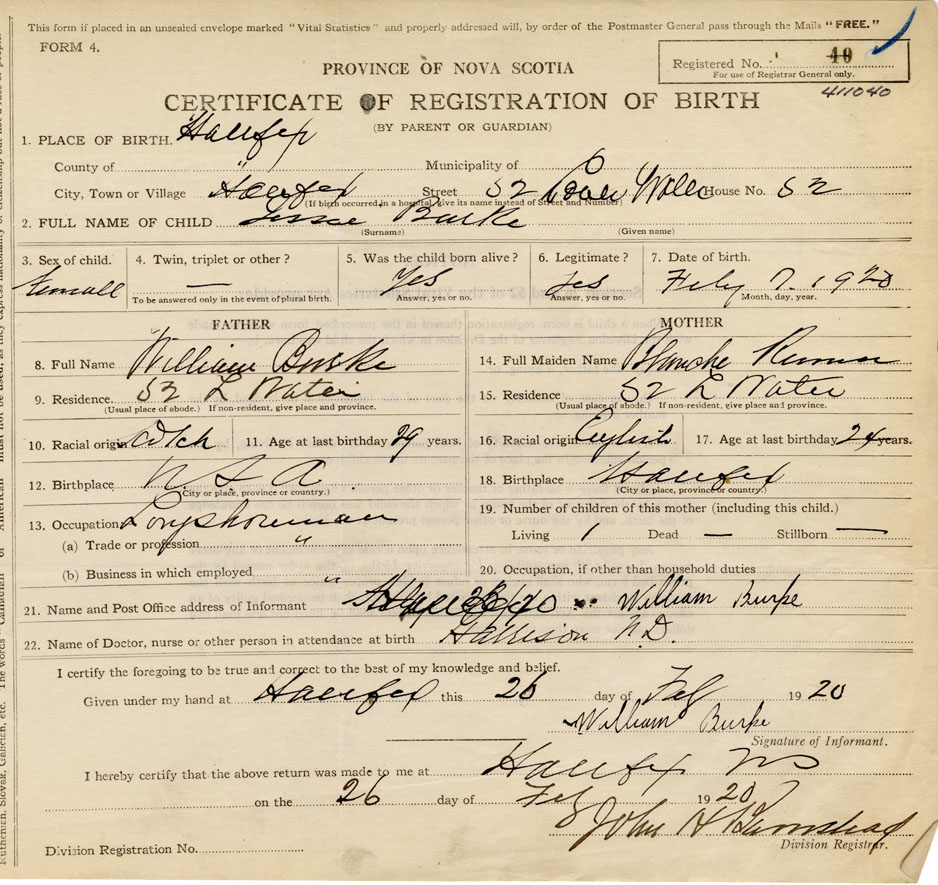 This form if placed in an unsealed envelope marked "Vital Statistics" and properly addressed will, by order of the Postmaster General pass through the Mails "FREE."
FORM 4.
Registered No. 40
For use of Registrar General only.
411040
PROVINCE OF NOVA SCOTIA
CERTIFICATE OF REGISTRATION OF BIRTH
(BY PARENT OR GUARDIAN)
1. PLACE OF BIRTH. Halifax
County of " Municipality of
City, Town or Village Halifax Street 52 Water House No. 52
(If birth occurred in a hospital, give its name instead of Street and Number)
2. FULL NAME OF CHILD Burke
(Surname) (Given name)
3. Sex of child. 4. Twin, triplet or other? 5. Was the child born alive? 6. Legitimate? 7. Date of birth.
Femall — Yes Yes Feby 7. 1920
To be answered only in the event of plural birth. Answer, yes or no. Answer, yes or no. Month, day, year.
FATHER MOTHER
8. Full Name William Burke 14. Full Maiden Name Blanche
9. Residence. 52 L Water 15. Residence 52 L Water
(Usual place of abode.) If non-resident, give place and province. (Usual place of abode.) If non-resident, give place and province.
10. Racial origin Scotch 11. Age at last birthday 29 years. 16. Racial origin English 17. Age at last birthday 24 years.
12. Birthplace 18. Birthplace Halifax
(City or place, province or country.) (City or place, province or country.)
13. Occupation Longshoreman 19. Number of children of this mother (including this child.)
(a) Trade or profession " Living 1 Dead — Stillborn —
(b) Business in which employed " 20. Occupation, if other than household duties
21. Name and Post Office address of Informant William Burke
22. Name of Doctor, nurse or other person in attendance at birth
I certify the foregoing to be true and correct to the best of my knowledge and belief.
Given under my hand at Halifax this 26 day of Feby 1920
William Burke
Signature of Informant.
I hereby certify that the above return was made to me at Halifax NS
on the 26 day of Feby 1920
John H Barnstead
Division Registration No. Division Registrar.